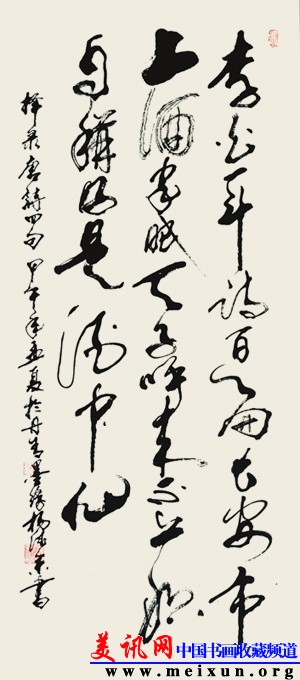 李白一斗诗百篇长安市
上酒家眠天子呼来不上船
自稱臣是酒中仙
择录唐詩四句 甲午年孟夏於丹青墨缘楊書
美讯网 中国书画收藏频道
www.meixun.org